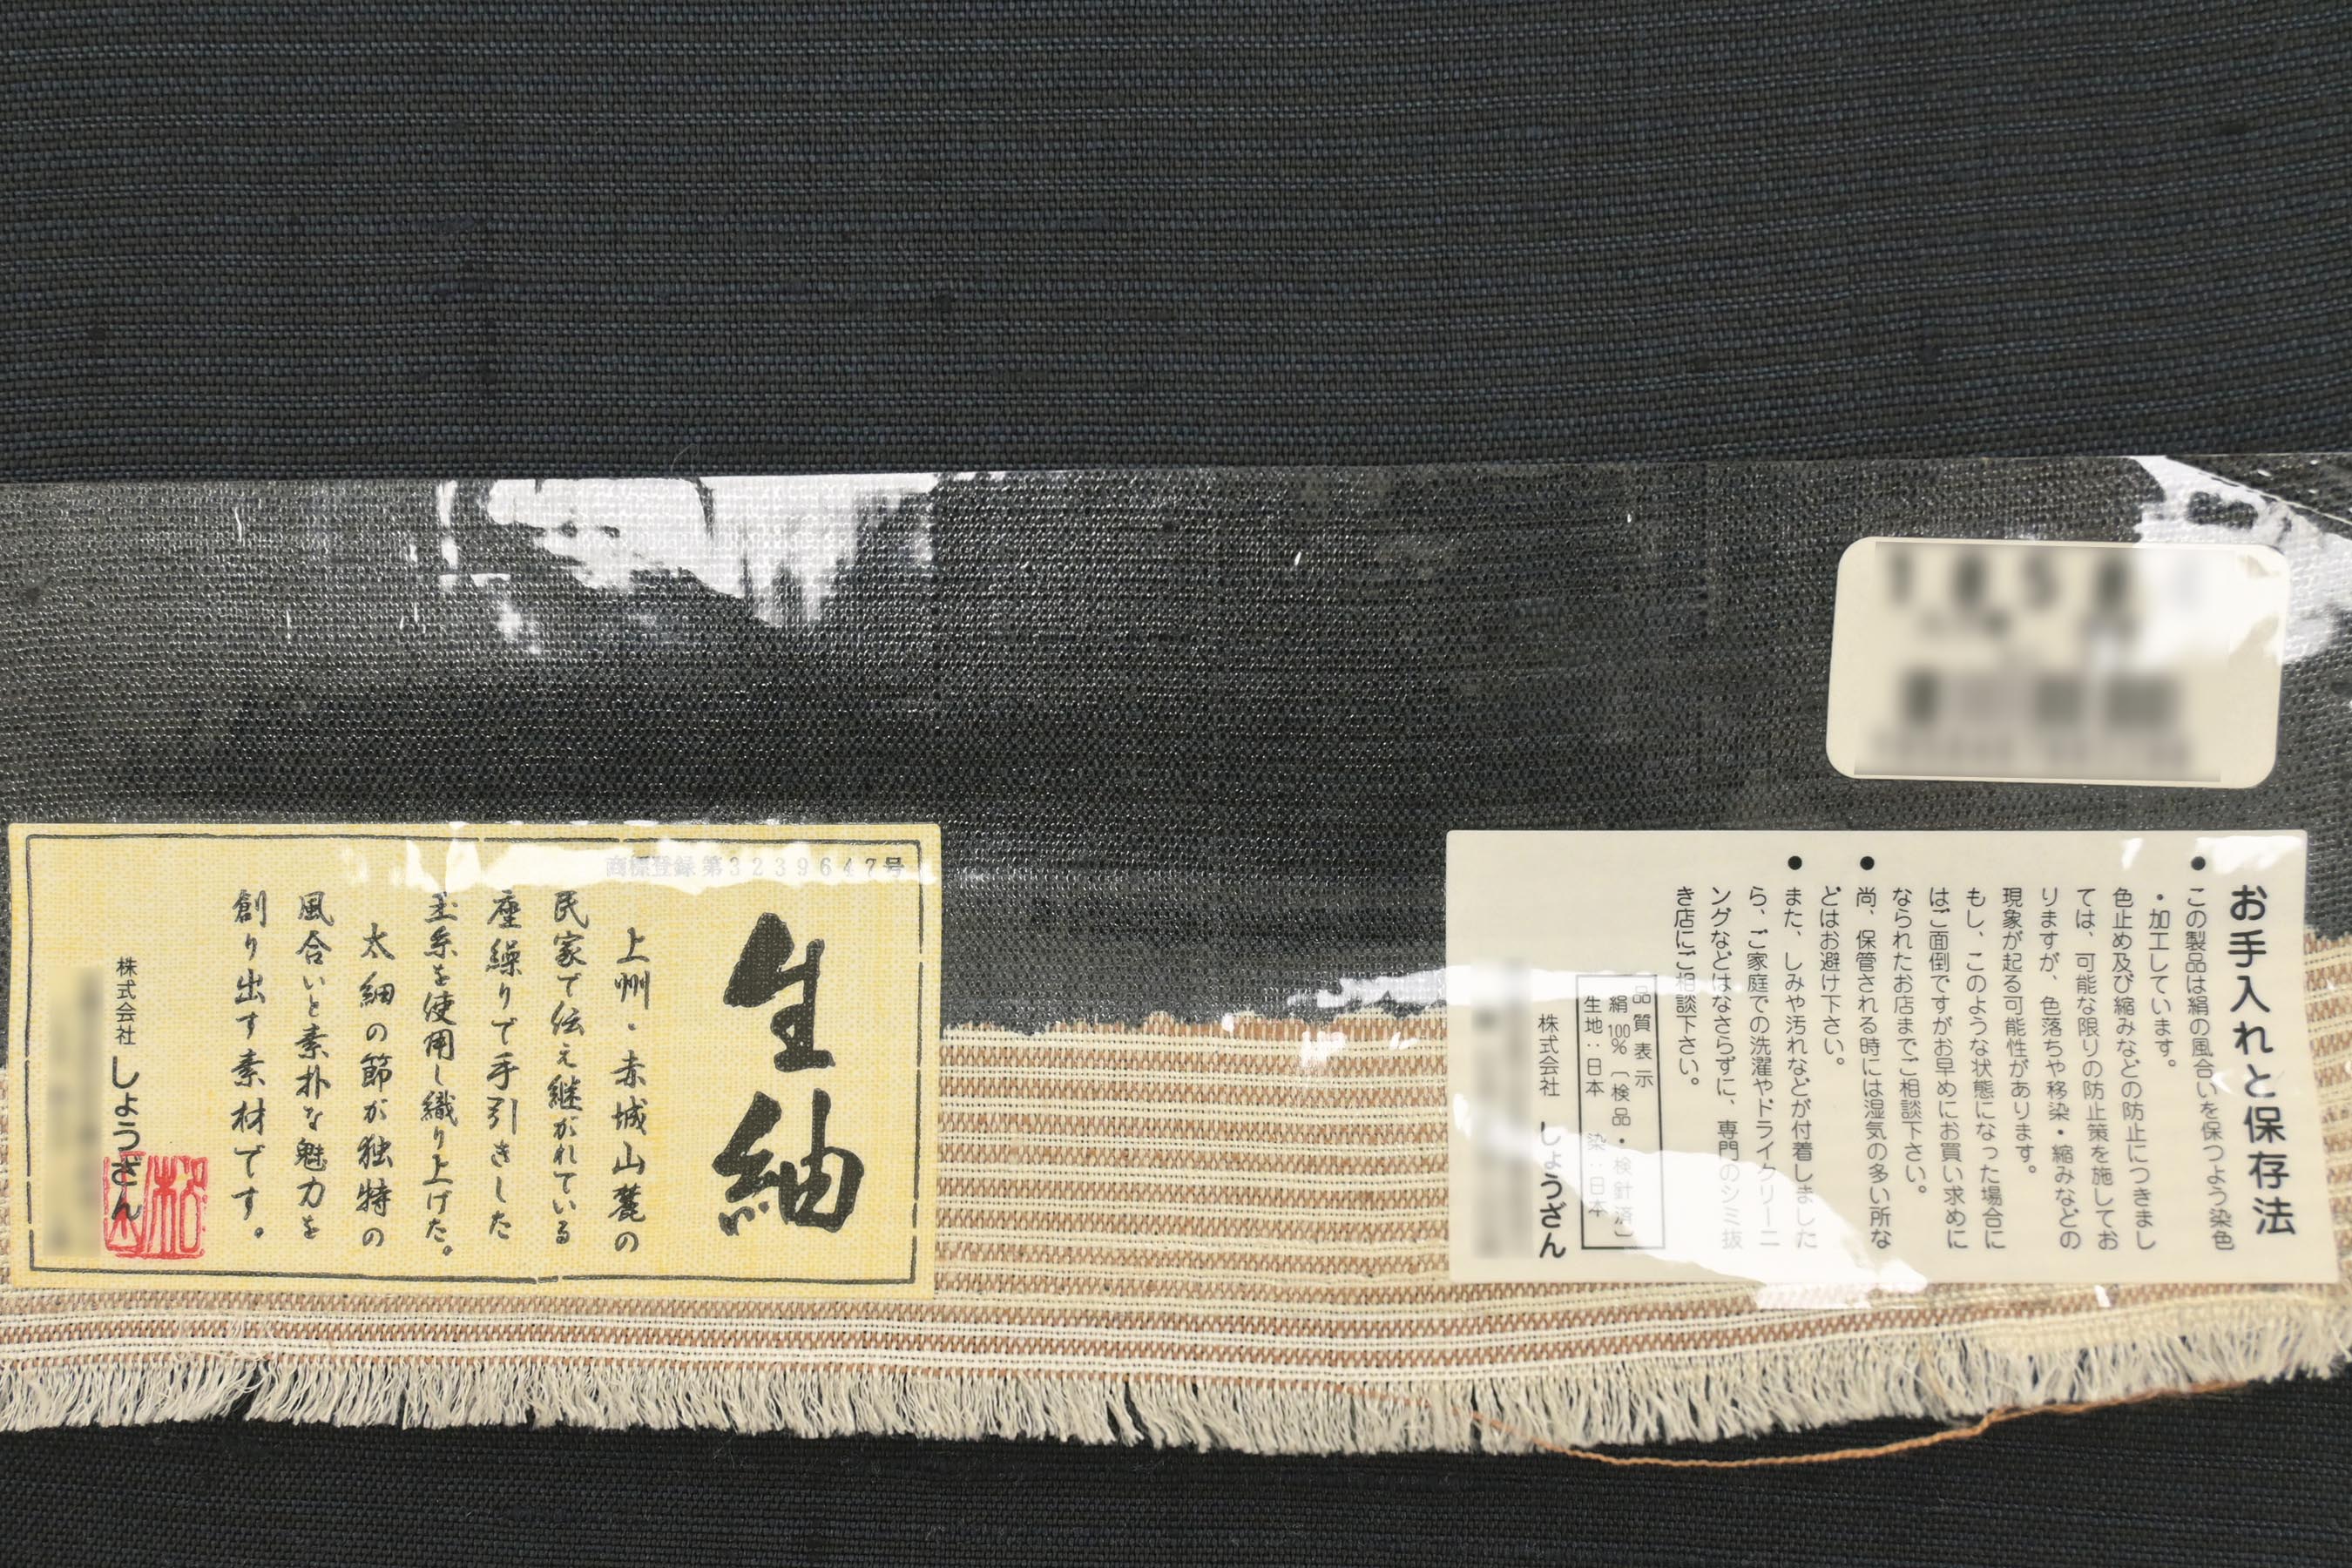 商標登録第3239647号
生紬
上州・赤城山麓の
民家で伝え継がれている
座繰りで手引きした
玉糸を使用し織り上げた。
太細の節が独特の
風合いと素朴な魅力を
創り出す素材です。
株式会社しょうざん
お手入れと保存法
●この製品は絹の風合いを保つよう染色
・加工しています。
色止め及び縮みなどの防止につきまし
ては、可能な限りの防止策を施してお
りますが、色落ちや移染・縮みなどの
現象が起る可能性があります。
もし、このような状態になった場合に
はご面倒ですがお早めにお買い求めに
なられたお店までご相談下さい。
●尚、保管される時には湿気の多い所な
どはお避け下さい。
●また、しみや汚れなどが付着しました
ら、ご家庭での洗濯やドライクリーニ
ングなどはなさらずに、専門のシミ抜
き店にご相談下さい。
品質表示
絹100%〔検品・検針済〕
生地:日本 染:日本
株式会社 しょうざん